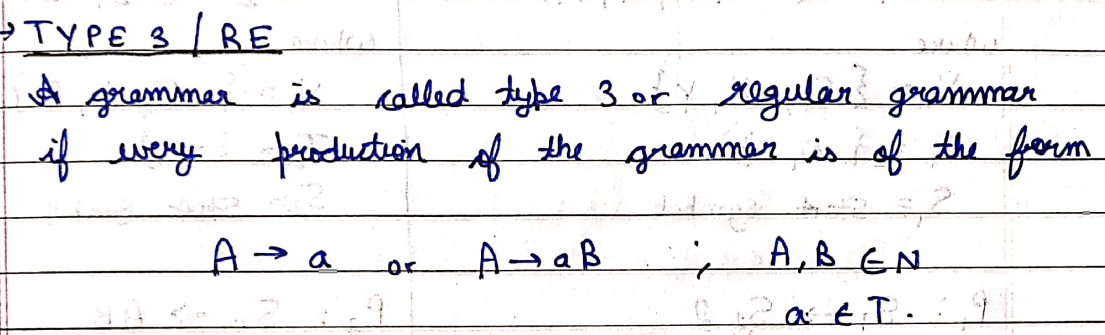 → TYPE 3 / RE
A grammar is called type 3 or regular grammar
if every production of the grammar is of the form
A → a or A → aB ; A, B ∈ N
a ∈ T.